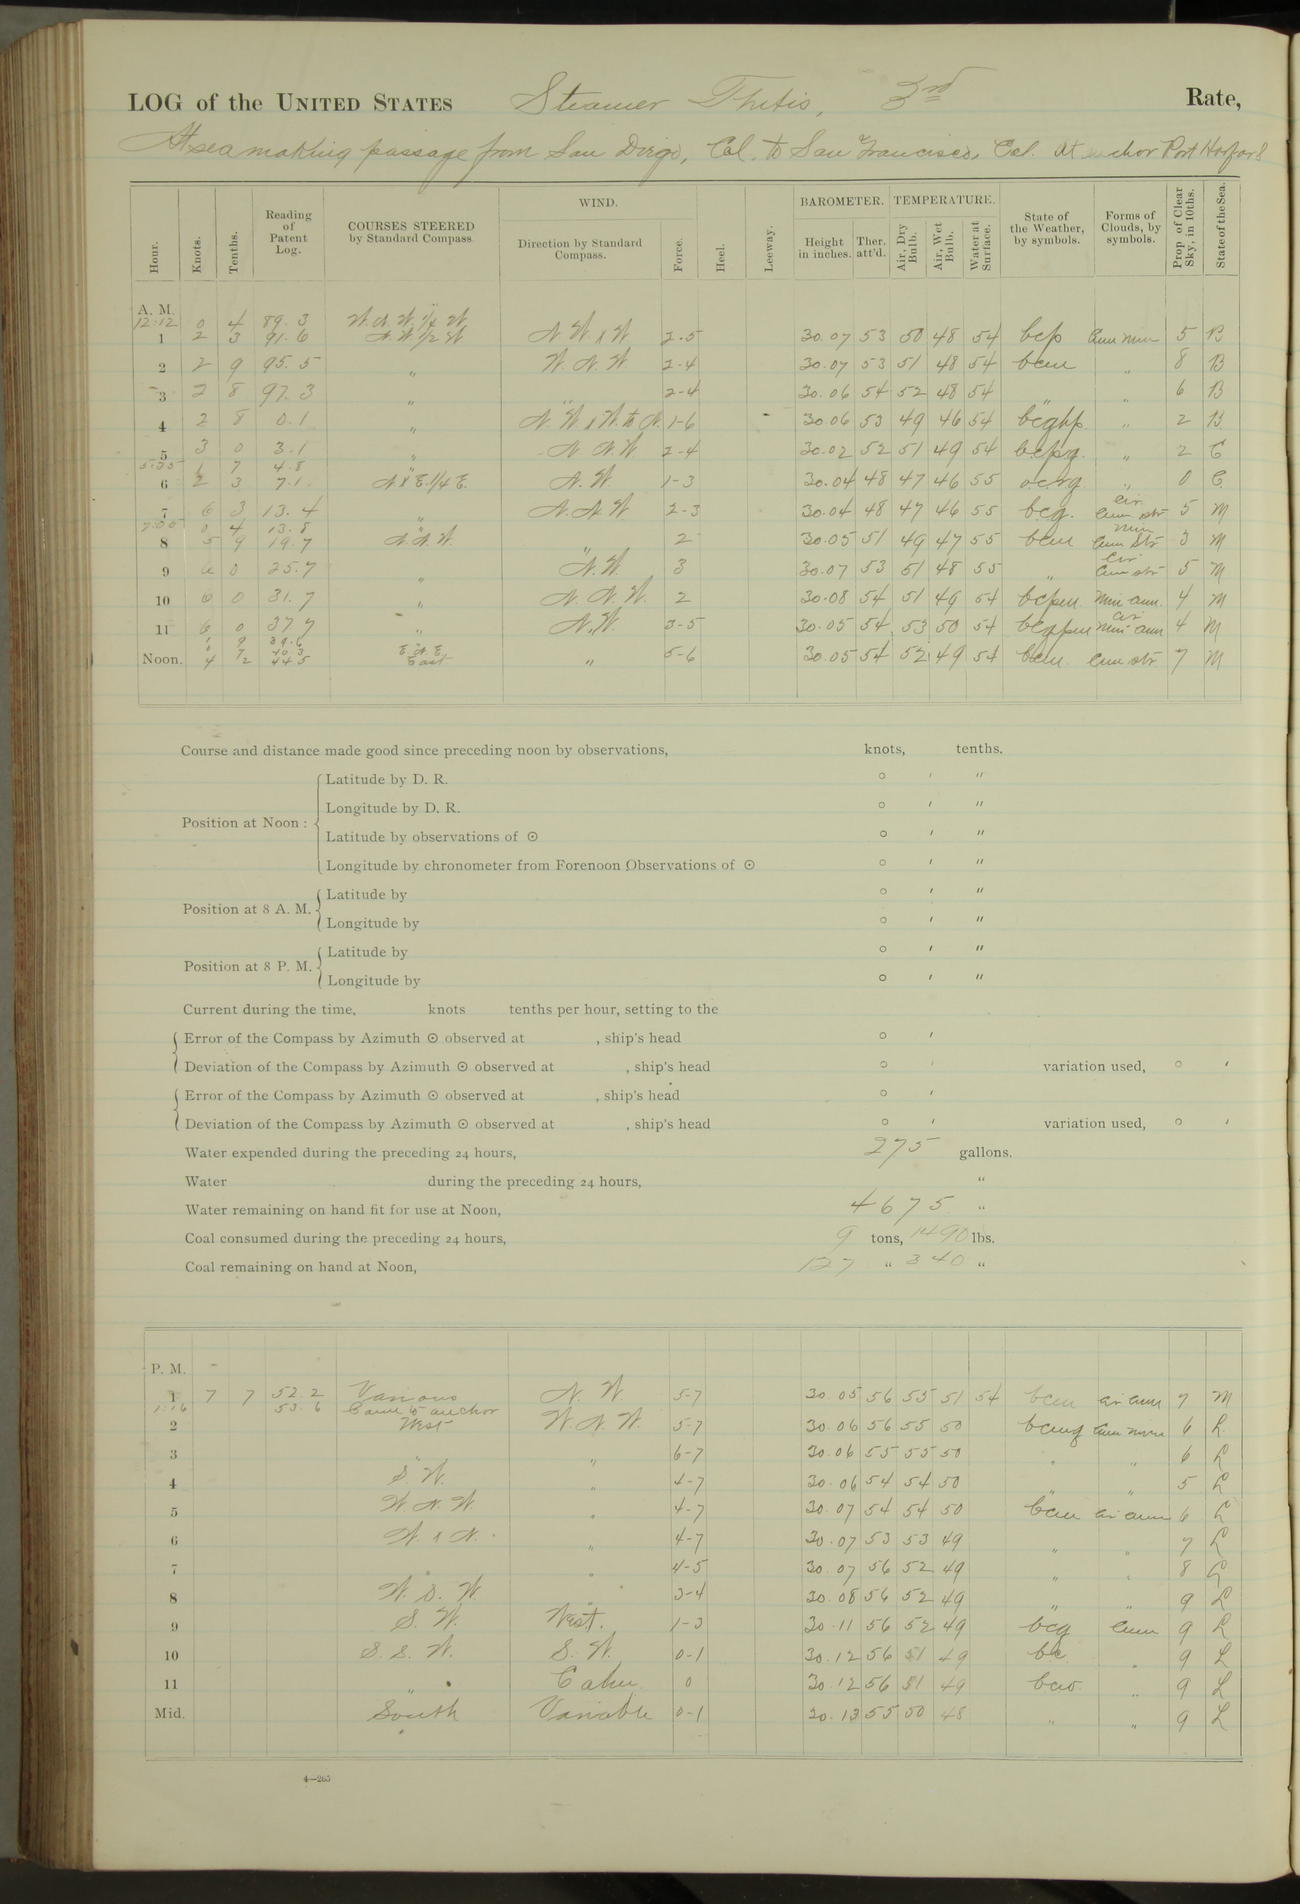 LOG of the UNITED STATES Steamer Thetis, 3rd Rate,
At sea making passage from San Diego, Cal. to San Francisco, Cal. At anchor Port Harford
Hour. Knots. Tenths. Reading of Patent Log. COURSES STEERED by Standard Compass. WIND. Direction by Standard Compass. Force. Heel. Leeway. BAROMETER. Height in inches. Ther. att'd. TEMPERATURE. Air, Dry Bulb. Air, Wet Bulb. Water at Surface. State of the Weather, by symbols. Forms of Clouds, by symbols. Prop of Clear Sky, in 10ths. State of the Sea.
A. M.
12:12 0 4 89.3 W.N.W. 1/4 W.
1 2 3 91.6 N.W. 1/2 W N W x W 2-5 30.07 53 50 48 54 bcp Cum Nim 5 B
2 2 9 95.5 " W. N. W 2-4 30.07 53 51 48 54 bcm " 8 B
3 2 8 97.3 " " 2-4 30.06 54 52 48 54 " " 6 B
4 2 8 0.1 " N. W x W. to N. 1-6 30.06 53 49 46 54 bcqhp. " 2 B.
5 3 0 3.1 " N N. W 2-4 30.02 52 51 49 54 bcpq. " 2 C
5:35 1 7 4.8 "
6 2 3 7.1 N x E. 1/4 E. N. W. 1-3 30.04 48 47 46 55 ocrq " 0 C.
7 6 3 13.4 " N. N W 2-3 30.04 48 47 46 55 bcq. Cir Cum Str 5 M
7:05 0 4 13.8 "
8 5 9 19.7 N. N. W. " 2 30.05 51 49 47 55 bcm Nim Cum Str 3 M
9 6 0 25.7 " N. W. 3 30.07 53 51 48 55 " Cir Cum str 5 M
10 6 0 31.7 " N. N. W. 2 30.08 54 51 49 54 bcpm Nim cum. 4 M
11 6 0 37.7 " N. W. 3-5 30.05 54 53 50 54 bcqpm Cir Nim cum 4 M
1 9 39.6
0 7 40.3 E. N. E.
Noon. 4 2 44.5 East " 5-6 30.05 54 52 49 54 bcm Cum str 7 M
Course and distance made good since preceding noon by observations, knots, tenths.
Position at Noon: Latitude by D. R. ° ′ ″
Longitude by D. R. ° ′ ″
Latitude by observations of ☉ ° ′ ″
Longitude by chronometer from Forenoon Observations of ☉ ° ′ ″
Position at 8 A. M. Latitude by ° ′ ″
Longitude by ° ′ ″
Position at 8 P. M. Latitude by ° ′ ″
Longitude by ° ′ ″
Current during the time, knots tenths per hour, setting to the
Error of the Compass by Azimuth ☉ observed at , ship's head ° ′
Deviation of the Compass by Azimuth ☉ observed at , ship's head ° ′ variation used, ° ′
Error of the Compass by Azimuth ☉ observed at , ship's head ° ′
Deviation of the Compass by Azimuth ☉ observed at , ship's head ° ′ variation used, ° ′
Water expended during the preceding 24 hours, 275 gallons.
Water during the preceding 24 hours, "
Water remaining on hand fit for use at Noon, 4675 "
Coal consumed during the preceding 24 hours, 9 tons, 1490 lbs.
Coal remaining on hand at Noon, 127 " 340 "
P. M.
1 7 7 52.2 Various N. W 5-7 30.05 56 55 51 54 bcm cir cum 7 M
1:16 53.6 Came to anchor
2 West W. N. W. 5-7 30.06 56 55 50 bcmq Cum nim 6 L.
3 " " 6-7 30.06 55 55 50 " " 6 L
4 S. W. " 4-7 30.06 54 54 50 " " 5 L
5 W N. W. " 4-7 30.07 54 54 50 bcm cir cum 6 L
6 W. x N. " 4-7 30.07 53 53 49 " " 7 L
7 " " 4-5 30.07 56 52 49 " " 8 L
8 W. S. W. " 3-4 30.08 56 52 49 " " 9 L
9 S. W. West. 1-3 30.11 56 52 49 bcq Cum 9 L
10 S. S. W. S. W. 0-1 30.12 56 51 49 bc. " 9 L
11 " Calm 0 30.12 56 51 49 bco. " 9 L
Mid. South Variable 0-1 30.13 55 50 48 " " 9 L
4—265